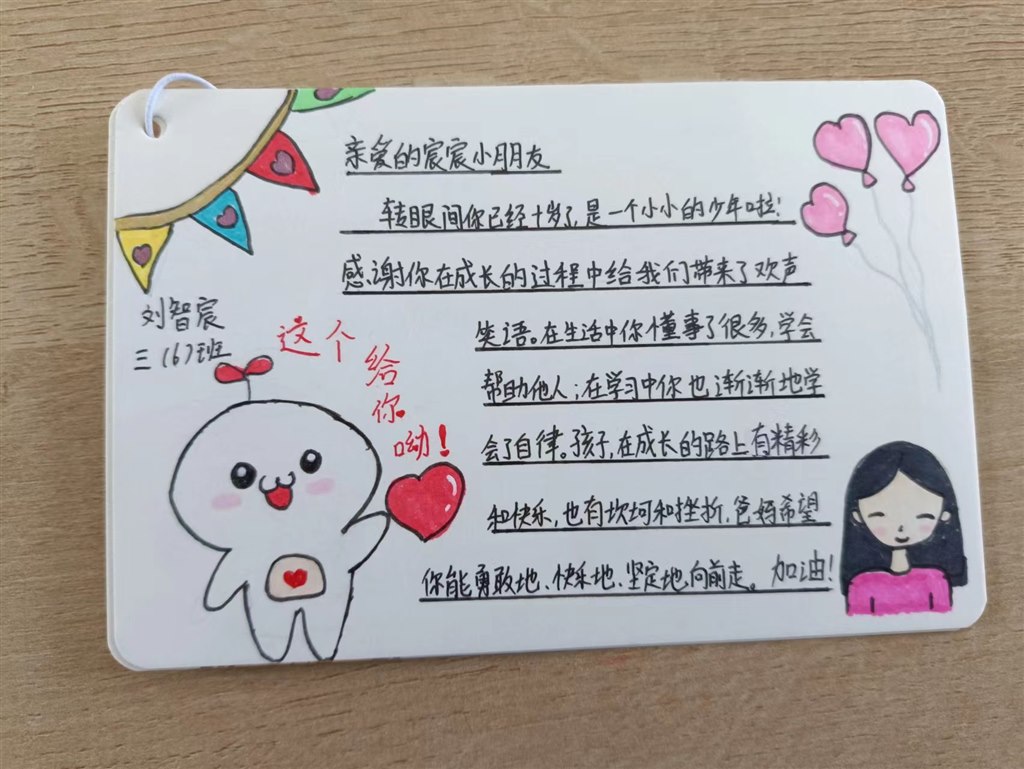 亲爱的宸宸小朋友
转眼间你已经十岁了,是一个小小的少年啦!
感谢你在成长的过程中给我们带来了欢声
笑语。在生活中你懂事了很多,学会
帮助他人;在学习中你也渐渐地学
会了自律。孩子,在成长的路上有精彩
和快乐,也有坎坷和挫折,爸妈希望
你能勇敢地、快乐地、坚定地向前走。加油!
刘智宸
三(6)班
这个给你呦!